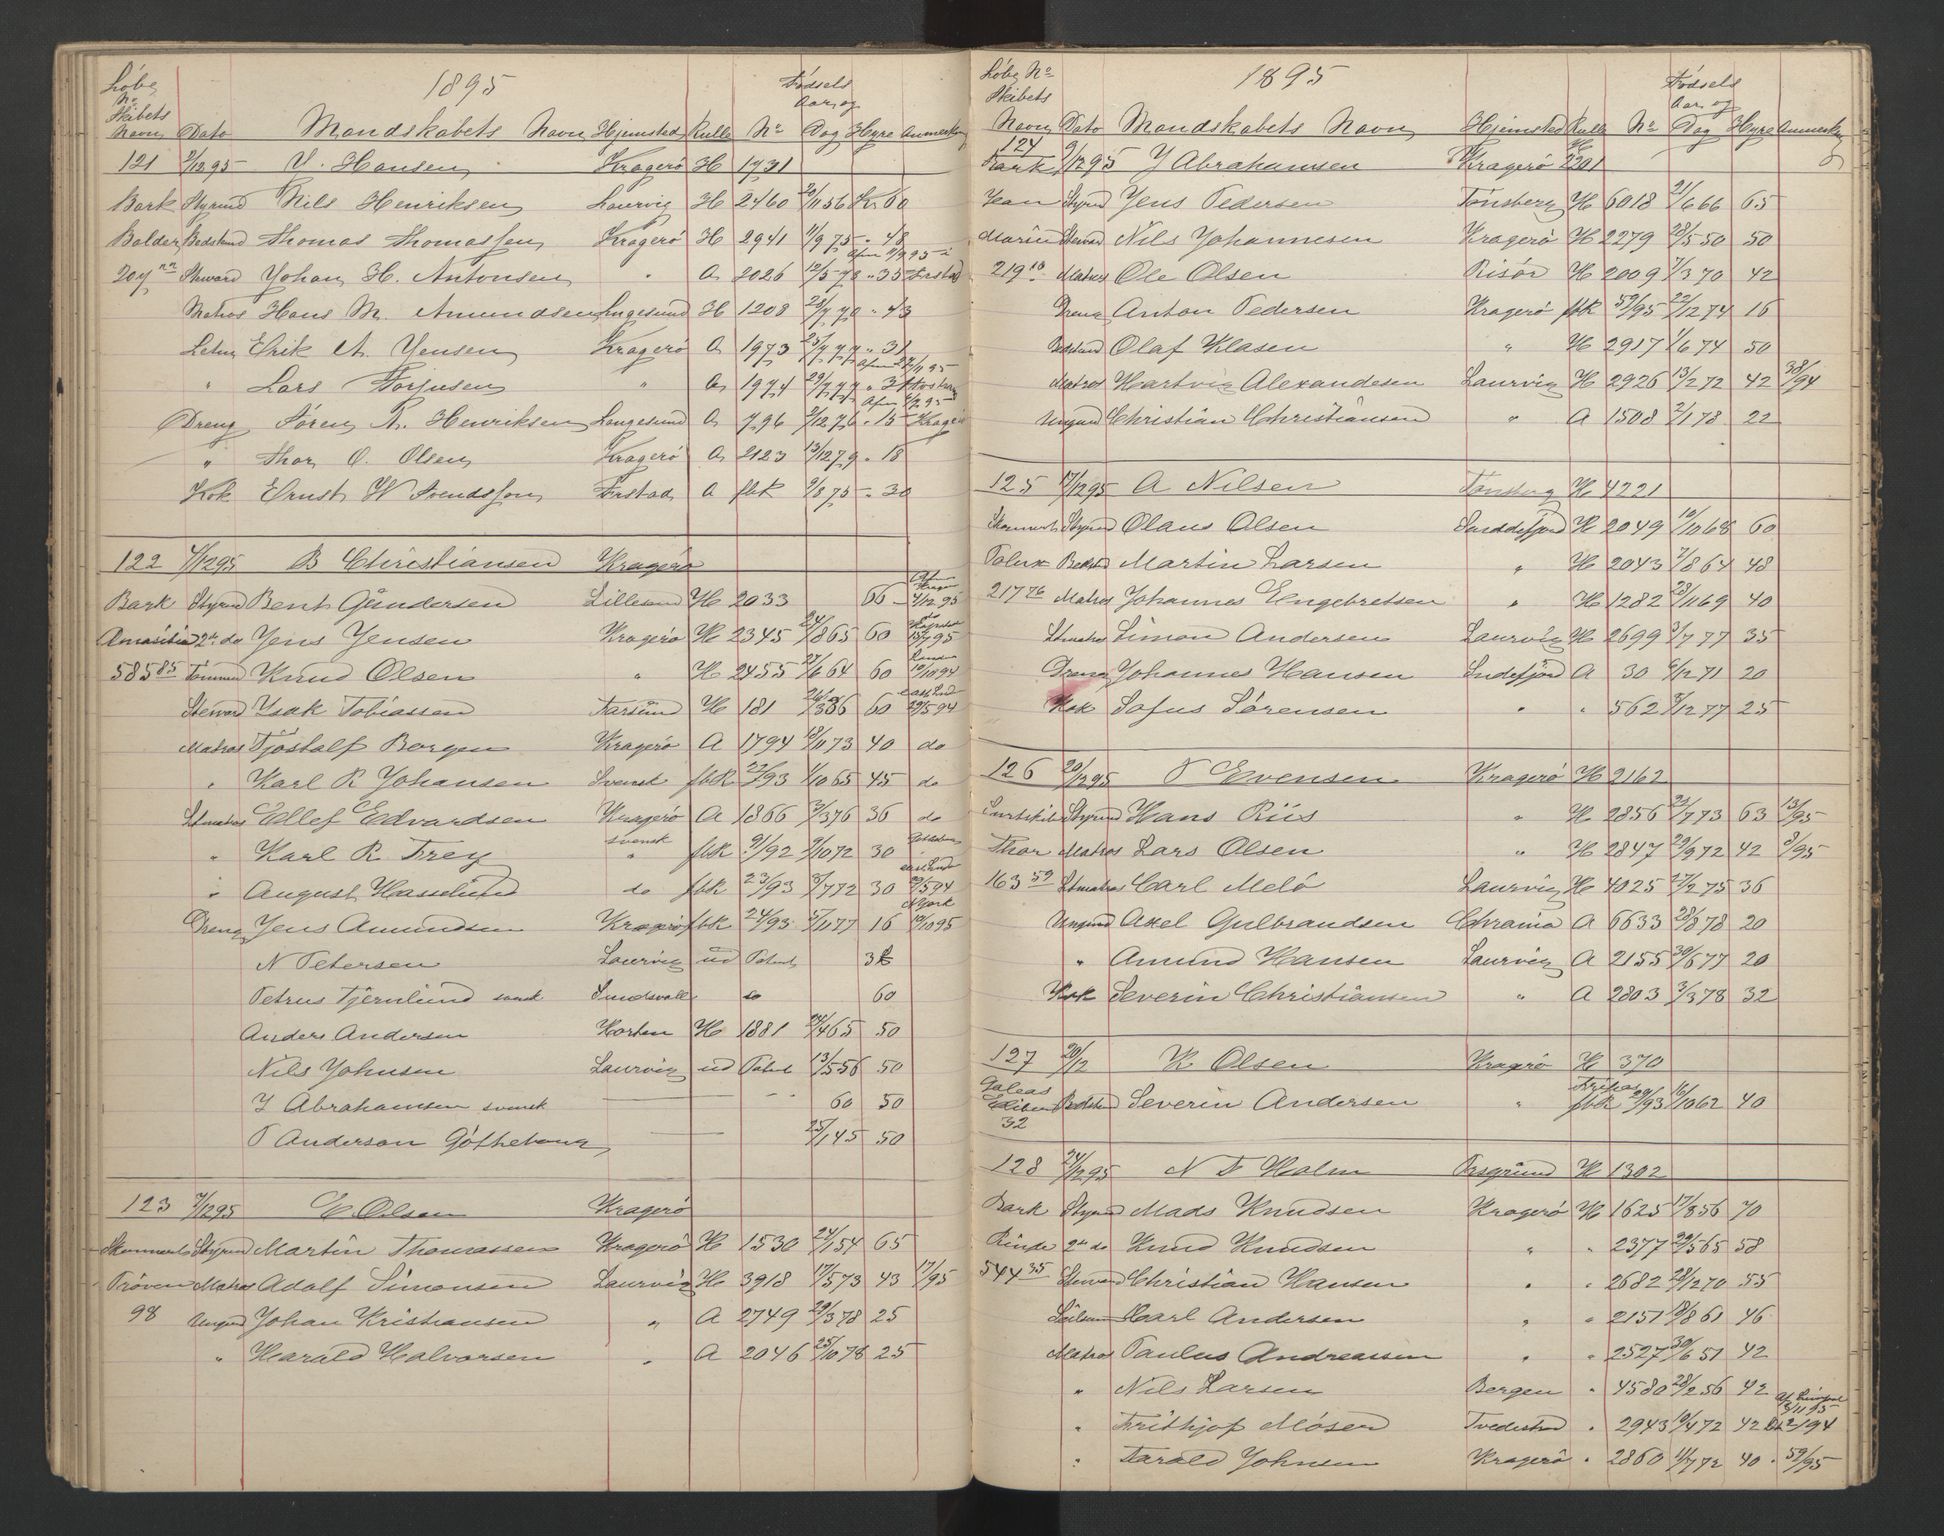 1895
Löbe No Skibets Navn Dato Mandskabets Navn Hjemsted Rulle No Födsels Aar og Dag Hyre Anmerkn
121 3/12 95 Hansen Kragerö H 1731
Bark Styrmd Nils Henriksen Laurvig H 2460 20/11 56 Kr 60
Balder Bedstmd Thomas Thomassen Kragerö H 2941 11/9 75 " 48
Steward Johan H. Antonsen " A 2026 12/5 78 " 35
Matros Hans M. Amundsen Langesund H 1208 28/7 70 " 43
Letm Erik A. Jensen Kragerö A 1973 25/7 77 " 31
" Lars Torjusen " A 1974 29/7 77 "
Dreng Sören A. Henriksen Langesund A 796 2/12 76 " 15 Kragerö
" Thor O. Olsen Kragerö A 2123 13/12 79 " 18
Kok Ernst W Svendssen A fbk 9/8 75 " 30
122 4/12 95 B Christiansen Kragerö
Bark Styrmd Bent Gundersen Lillesand H 2033 66 4/12 95
Amasitia 2n do Jens Jensen Kragerö H 2345 24/8 65 60
585 85 Tömmmd Knud Olsen " H 2455 27/6 64 60 10/10 94
Steward Isak Tobiassen Farsund H 181 60 29/5 94
Matros Tjöstolf Borgen Kragerö A 1794 8/11 73 40 do
" Karl R Johansen Svensk fbk 22/93 1/10 65 45 do
Letmatros Ellef Edvardsen Kragerö A 1866 3/3 76 36 do
" Karl R Frey svensk " fbk 91/92 9/10 72 30
" August Hasselund do fbk 23/93 8/7 72 30 29/5 94
Dreng Jens Amundsen Kragerö fbk 24/93 5/11 77 16 10/10 95
N Petersen Laurvig ud Patent
Petrus Tjernlund svensk Sundsvall do 60
Anders Andersen Horten H 1881 24/4 65 50
Nils Johnsen Laurvig ud Patent 13/5 56 50
J Abrahamsen svensk 60 50
T Anderson Göthebong 25/1 45 50
123 7/12 95 E. Olsen Kragerö
Skonnert Styrmd Martin Thomassen Kragerö H 1530 24/1 54 65
Pröven Matros Adolf Simonsen Laurvig H 3918 17/5 73 43 17/95
98 Ungmd Johan Kristiansen " A 2749 29/3 78 25
" Harald Halvorsen " A 2046 25/10 78 25
1895
Löbe No Skibets Navn Dato Mandskabets Navn Hjemsted Rulle No Födsels Aar og Dag Hyre Anmerkn
124 9/12 95 J Abrahamsen Kragerö H 2201
Bark
Jean Styrmd Jens Pedersen Tönsberg H 6018 21/6 66 65
Marin Steward Nils Johannesen Kragerö H 2279 28/5 50 50
219 10 Matros Ole Olsen Risör H 2009 7/3 70 42
Dreng Anton Pedersen Kragerö fbk 59/95 22/12 74 16
Bedstmd Olaf Klasen " H 2917 1/6 74 50
Matros Hartvig Alexandesen Laurvig H 2926 13/2 72 42 38/94
Ungmd Christian Christiansen " A 1508 2/1 78 22
125 17/12 95 A Nilsen Tönsberg H 4221
Skonnert Styrmd Olaus Olsen Sanddefjord H 2049 10/10 68 60
Bedstmd Martin Larsen " H 2043 7/8 64 48
217 76 Matros Johannes Engebretsen " H 1282 28/11 69 40
Letmatros Simon Andersen Laurvig H 2699 3/7 77 35
Dreng Johannes Hansen Sndefjord A 30 6/12 71 20
Kok Sofus Sörensen " " 562 3/12 77 25
126 20/12 95 Evensen Kragerö H 2162
Styrmd Hans Riis " H 2856 25/7 73 63 13/95
Thor Matros Lars Olsen " H 2847 29/9 72 42 8/95
163 59 Letmatros Carl Melö Laurvig H 4025 27/2 75 36
Ungmd Axel Gulbrandsen Chrania A 6633 28/8 78 20
" Amund Hansen Laurvig A 2155 30/6 77 20
Kok Severin Christiansen " A 2803 3/3 78 32
127 20/12 K Olsen Kragerö H 370
Galeas
32 Bedstmd Severin Andersen " fbk 29/93 16/10 62 40
128 24/12 95 N F Holm Porsgrund H 1302
Bark Styrmd Mads Knudsen Kragerö H 1625 17/8 56 70
2n do Knud Knudsen " " 2377 29/5 65 58
544 35 Steward Christian Hansen " " 2682 28/12 70 55
Carl Andersen " " 2151 18/8 61 46
Matros Paulus Andreassen " " 2527 30/6 51 42
" Nils Larsen Bergen " 4580 28/2 56 42
" Frithjof Mosen Tvedestrand " 2943 10/4 72 42
" Tarald Johnsen Kragerö " 2860 11/7 72 40 " 59/95